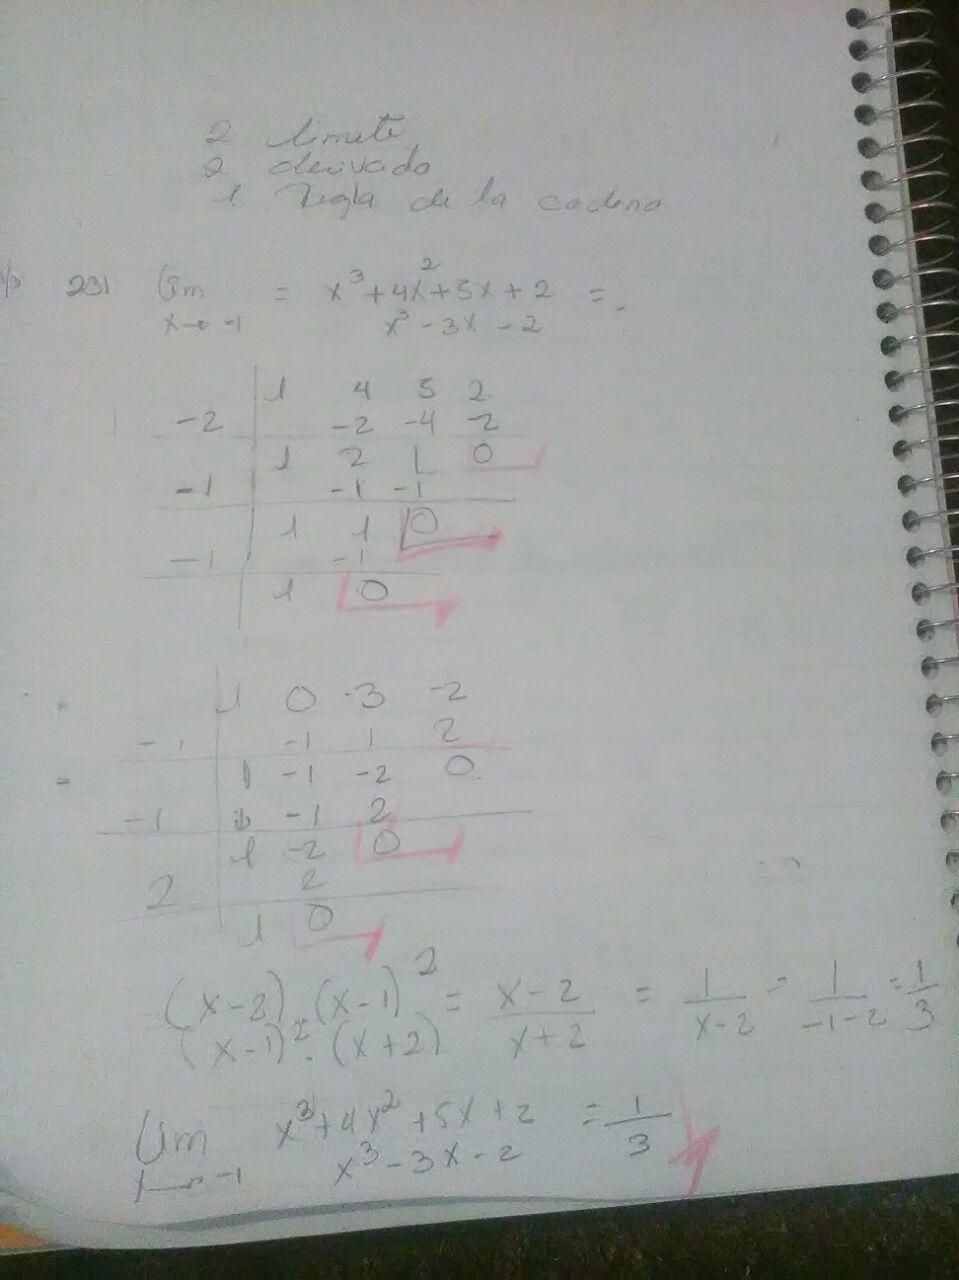 2 limite
2 derivada
1. Regla de la cadena
231 lim = x³ + 4x² + 5x + 2 = -
x → -1 x³ - 3x - 2
1 4 5 2
-2 -2 -4 -2
1 2 1 0
-1 -1 -1
1 1 0
-1 -1
1 0
1 0 -3 -2
-1 -1 1 2
1 -1 -2 0
-1 -1 2
1 -2 0
2 2
1 0
(x-2).(x-1)² = x-2 = 1 = 1 = 1
(x-1)².(x+2) x+2 x-2 -1-2 3
lim x³ + 4x² + 5x + 2 = 1
x → -1 x³ - 3x - 2 3